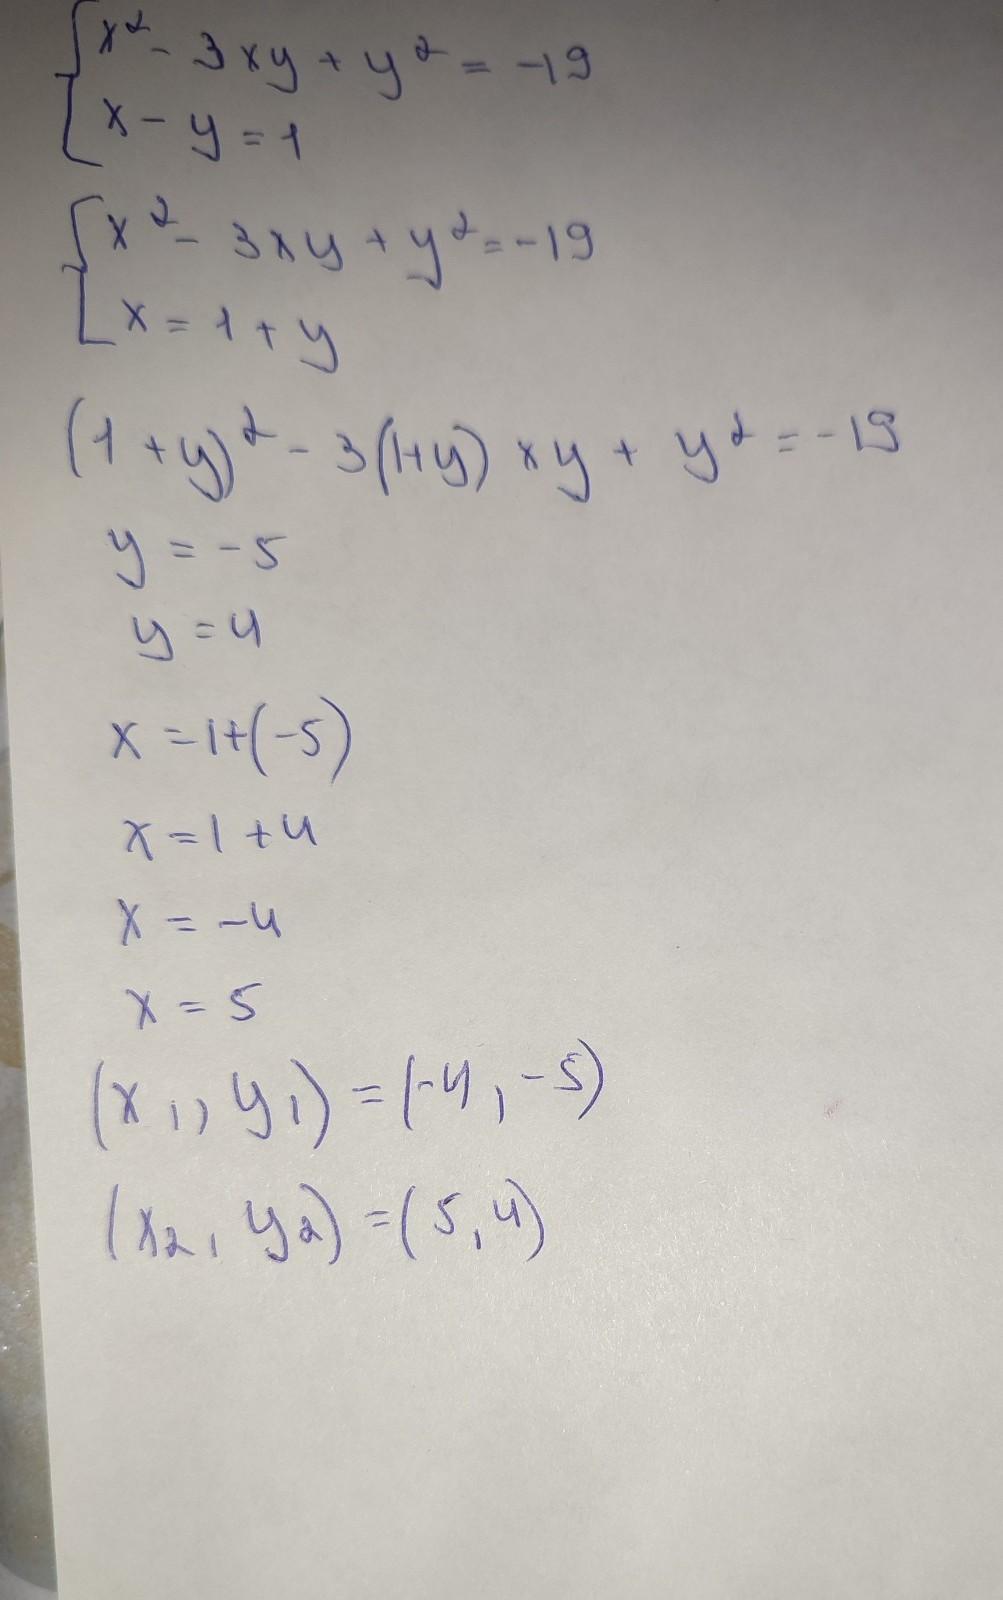 x² - 3xy + y² = -19
x - y = 1
x² - 3xy + y² = -19
x = 1 + y
(1 + y)² - 3(1+y) xy + y² = -19
y = -5
y = 4
x = 1+(-5)
x = 1 + 4
x = -4
x = 5
(x₁, y₁) = (-4, -5)
(x₂, y₂) = (5, 4)